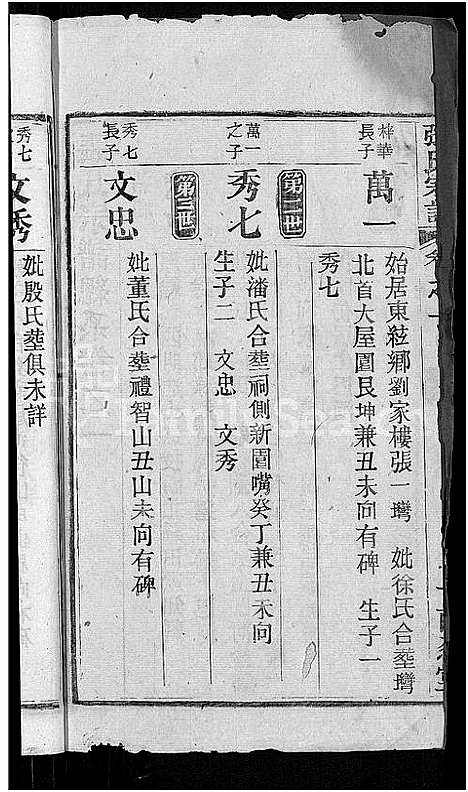 張氏宗譜
卷之一
梓華
長子
萬一
始居東䢼鄉劉家樓張一灣 妣徐氏合塟灣
北首大屋園艮坤兼丑未向有碑 生子一
秀七
第二世
萬一
之子
秀七
妣潘氏合塟祠側新園嘴癸丁兼丑未向
生子二 文忠 文秀
第三世
秀七
長子
文忠
妣董氏合塟禮智山丑山未向有碑
秀七
文秀
妣殷氏塟俱未詳